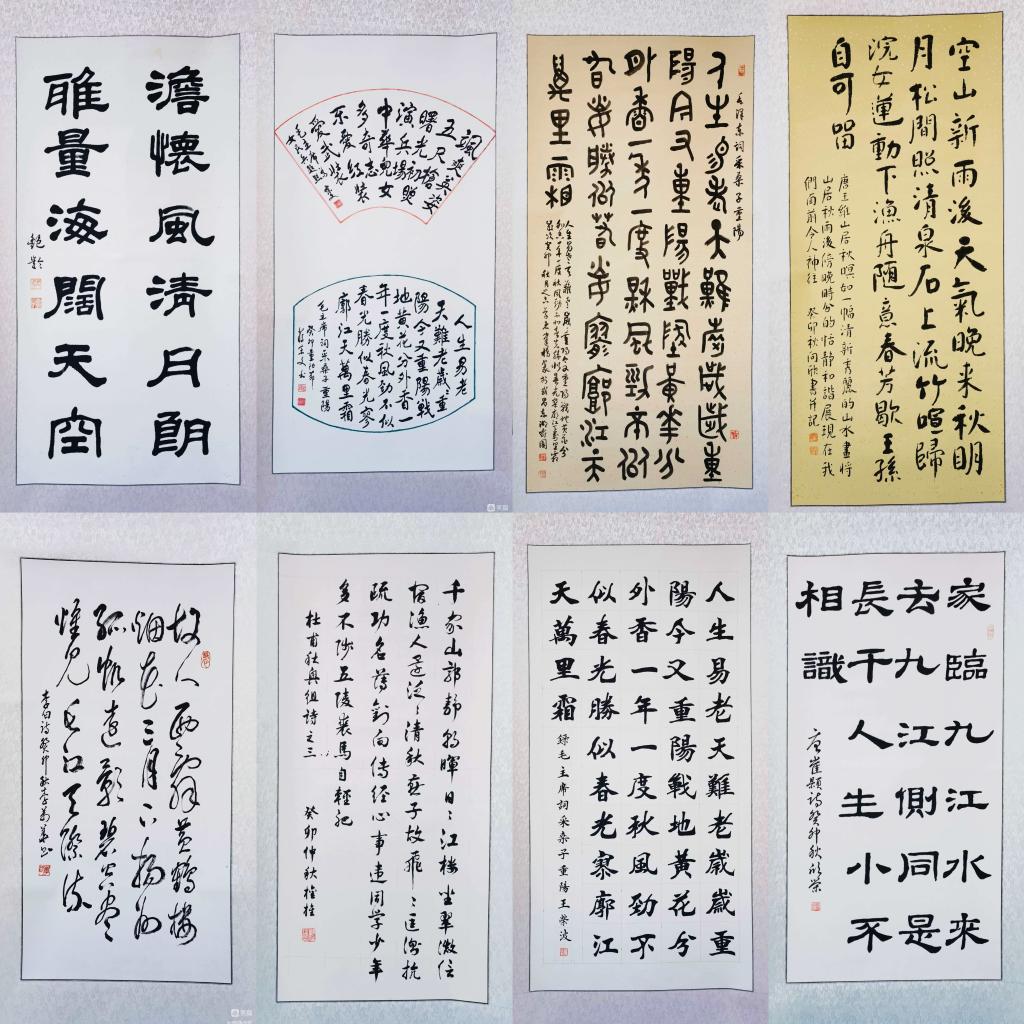 澹懷風清月朗
雅量海闊天空
颯爽英姿
五尺槍
曙光初照
演兵場
中華兒女
多奇志
不愛紅裝
愛武裝
人生易老
天難老歲歲重
陽今又重陽戰
地黃花分外香一
年一度秋風勁不似
春光勝似春光寥
廓江天萬里霜
毛主席詞采桑子重陽
毛澤東詞采桑子重陽
人生易老天難老歲歲重
陽今又重陽戰地黃花分
外香一年一度秋風勁不似
春光勝似春光寥廓江天
萬里霜
空山新雨後天氣晚来秋明
月松間照清泉石上流竹喧歸
浣女蓮動下漁舟随意春芳歇王孫
自可留
唐王維山居秋暝如一幅清新秀麗的山水畫將
山居秋雨後傍晚時分的恬靜和諧展現在我
們面前令人神往 癸卯秋向欣書并記
故人西辭黃鶴樓
烟花三月下揚州
孤帆遠影碧空盡
惟見長江天際流
李白詩癸卯秋
千家山郭靜朝暉日〻江樓坐翠微信
宿漁人還泛〻清秋燕子故飛〻匡衡抗
疏功名薄劉向傳經心事違同學少年
多不賤五陵裘馬自輕肥
杜甫秋興組詩之三 癸卯仲秋桂桂
人生易老天難老歲歲重
陽今又重陽戰地黃花分
外香一年一度秋風勁不
似春光勝似春光寥廓江
天萬里霜
錄毛主席詞采桑子重陽王榮波
家臨九江水来
去九江側同是
長干人生小不
相識
唐崔顥詩癸卯秋欣榮